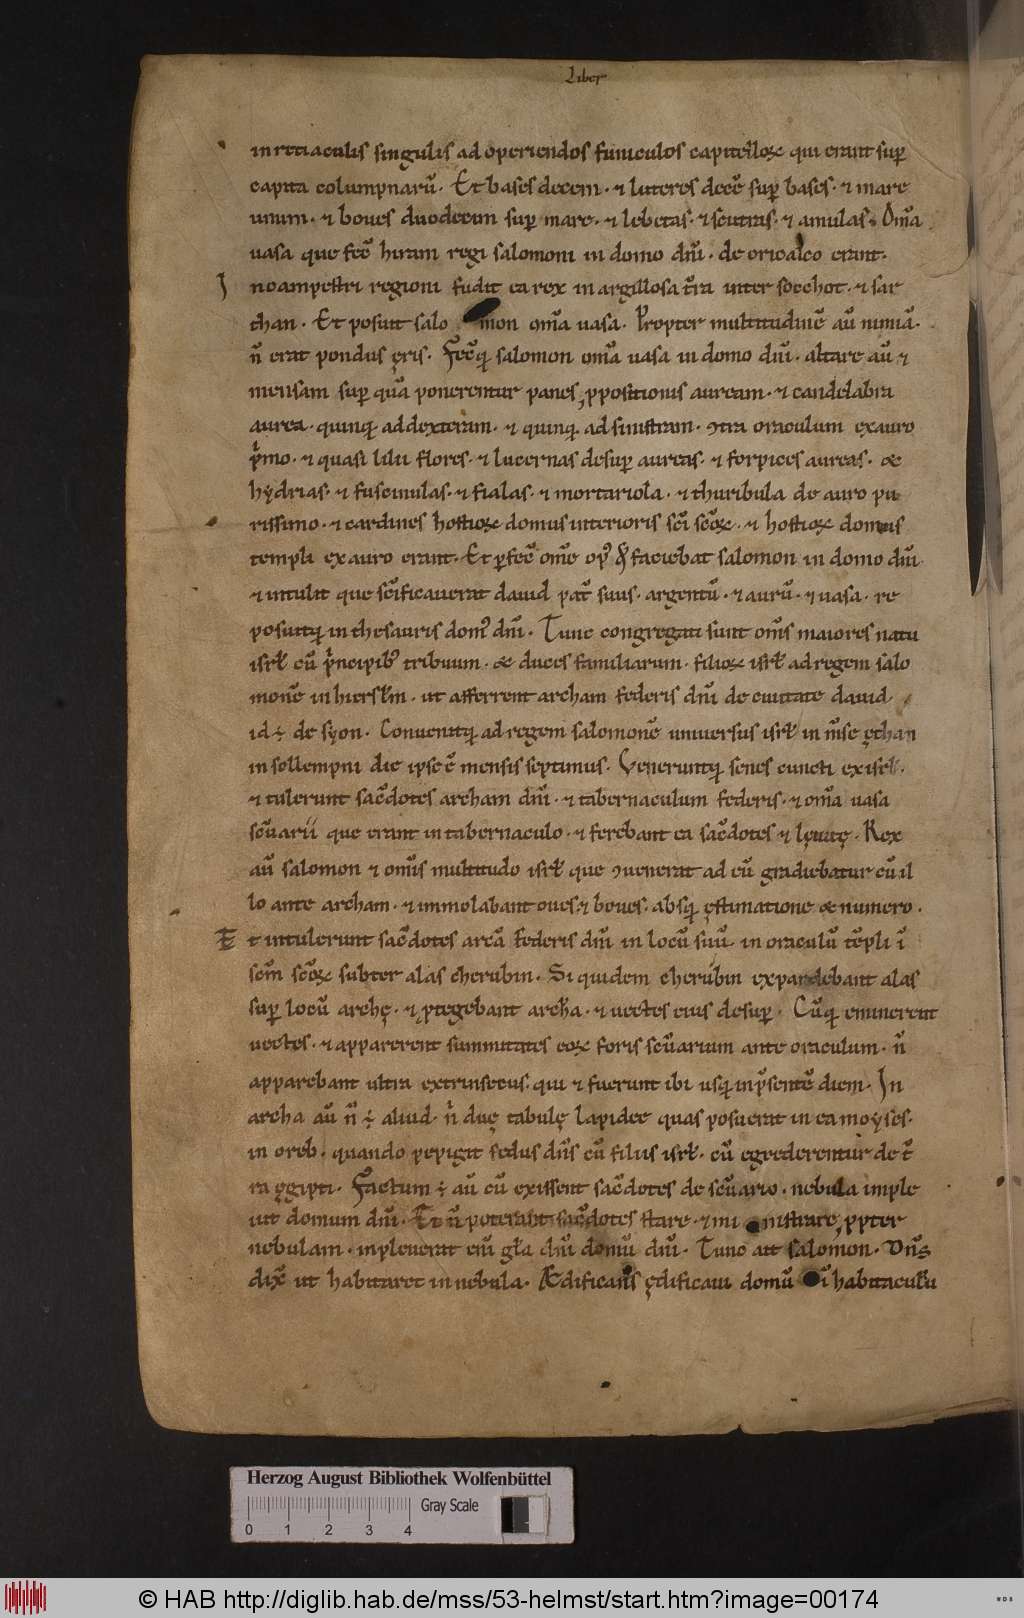 Liber
in retiaculis singulis ad operiendos funiculos capitelloꝝ qui erant sup̄
capita columpnarū. Et bases decem. ⁊ luteres decē sup̄ bases. ⁊ mare
unum. ⁊ boues duodecim sup̄ mare. ⁊ lebetas. ⁊ scutras. ⁊ amulas. Om̄a
uasa que fec̄ hiram regi salomoni in domo dn̄i. de oricalco erant.
In campestri regioni fudit ea rex in argillosa t̄ra inter socchot. ⁊ sar
than. Et posuit salomon om̄a uasa. Propter multitudinē aū nimiā.
n̄ erat pondus ęris. Fecitq̄ salomon om̄a uasa in domo dn̄i. altare aū ⁊
mensam sup̄ quā ponerentur panes ꝓpositionis auream. ⁊ candelabra
aurea. quinq̄ ad dexteram. ⁊ quinq̄ ad sinistram. ꝯtra oraculum ex auro
p̄mo. ⁊ quasi lilii flores. ⁊ lucernas desup̄ aureas. ⁊ forpices aureas. &
hydrias. ⁊ fuscinulas. ⁊ fialas. ⁊ mortariola. ⁊ thuribula de auro pu
rissimo. ⁊ cardines hostioꝝ domus interioris sc̄i sc̄oꝝ. ⁊ hostioꝝ domus
templi ex auro erant. Et ꝑfec̄ om̄e opꝰ qd̄ faciebat salomon in domo dn̄i.
⁊ intulit que sc̄ificauerat dauid pat̄ suus. argentū. ⁊ aurū. ⁊ uasa. re
posuitq̄ in thesauris domꝰ dn̄i. Tunc congregati sunt om̄s maiores natu
isrl̄ cū p̄ncipibꝰ tribuum. & duces familiarum. filioꝝ isrl̄ ad regem salo
monē in hiersl̄m. ut afferrent archam federis dn̄i de ciuitate dauid.
id ÷ de syon. Conuenitq̄ ad regem salomonē uniuersus isrl̄ in m̄se ęthan
in sollempni die ipse ē mensis septimus. Veneruntq̄ senes cuncti ex isrl̄.
⁊ tulerunt sac̄dotes archam dn̄i. ⁊ tabernaculum federis. ⁊ om̄a uasa
sc̄uarii que erant in tabernaculo. ⁊ ferebant ea sac̄dotes ⁊ lęuitę. Rex
aū salomon ⁊ om̄s multitudo isrl̄ que ꝯuenerat ad eū gradiebatur cū il
lo ante archam. ⁊ immolabant oues. ⁊ boues. absq̄ ęstimatione & numero.
Et intulerunt sac̄dotes arcā federis dn̄i in locū suū. in oraculū tēpli ī
sc̄m sc̄oꝝ subter alas cherubin. Si quidem cherubin expandebant alas
sup̄ locū archę. ⁊ ꝓtegebant archā. ⁊ uectes eius desup̄. Cūq̄ eminerent
uectes. ⁊ apparerent summitates eoꝝ foris sc̄uarium ante oraculum. n̄
apparebant ultra extrinsecus. qui ⁊ fuerunt ibi usq̄ in p̄sentē diem. In
archa aū n̄ ÷ aliud. n̄ duę tabulę lapidee quas posuerat in ea moyses.
in oreb. quando pepigit fedus dn̄s cū filiis isrl̄. cū egrederentur de t̄
ra ęgipti. Factum ÷ aū cū exissent sac̄dotes de sc̄uario. nebula imple
uit domum dn̄i. Et n̄ poterant sac̄dotes stare. ⁊ ministrare ꝓpter
nebulam. inpleuerat eni gl̄a dn̄i domū dn̄i. Tunc ait salomon. Dn̄s
dix̄ ut habitaret in nebula. Ædificans ędificaui domū ī habitaculū
Herzog August Bibliothek Wolfenbüttel
Gray Scale
0 1 2 3 4
© HAB http://diglib.hab.de/mss/53-helmst/start.htm?image=00174